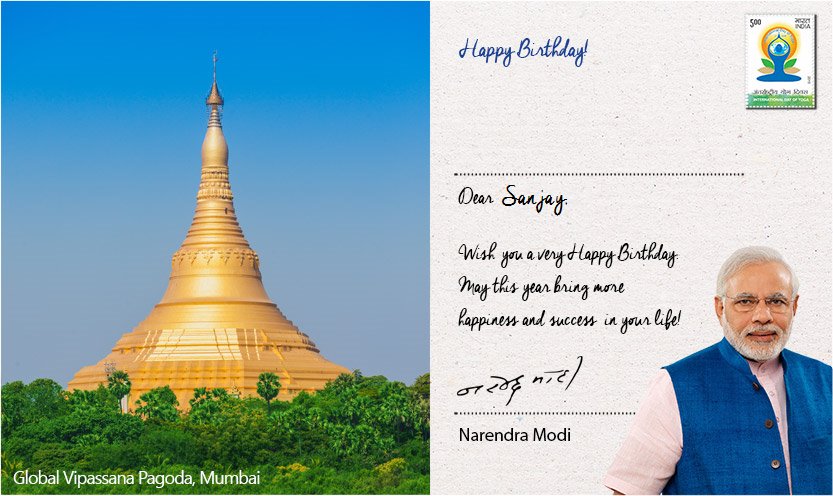 Happy Birthday!
5.00
भारत
INDIA
अंतर्राष्ट्रीय योग दिवस
INTERNATIONAL DAY OF YOGA
Dear Sanjay,
Wish you a very Happy Birthday.
May this year bring more
happiness and success in your life!
नरेन्द्र मोदी
Narendra Modi
Global Vipassana Pagoda, Mumbai